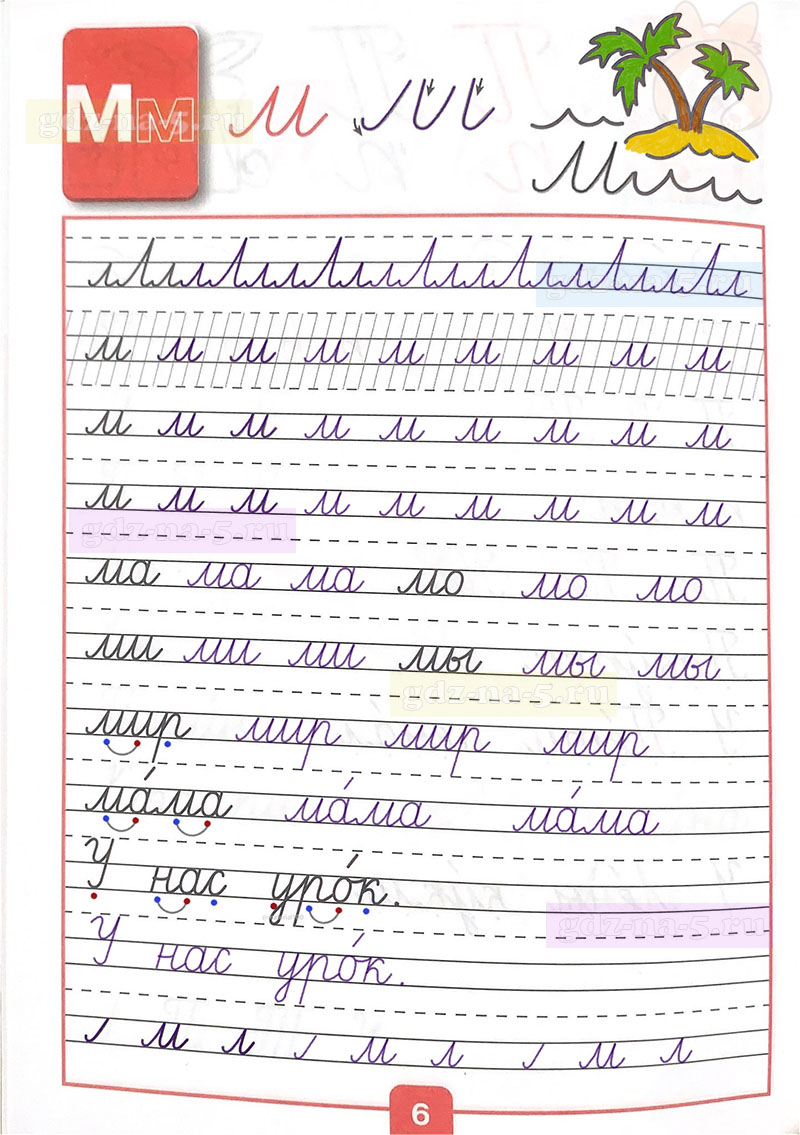 Мм м
м м м м м м м м м
м м м м м м м м м
м м м м м м м м м
ма ма ма мо мо мо
ми ми ми мы мы мы
мир мир мир мир
ма́ма ма́ма ма́ма
У нас уро́к.
У нас уро́к.
м л м л м л
6
gdz-na-5.ru
gdz-na-5.ru
gdz-na-5.ru
gdz-na-5.ru
gdz-na-5.ru